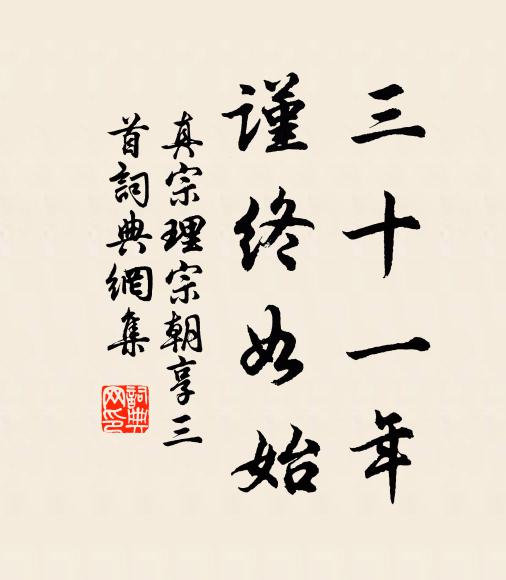 三十一年
谨终如始
真宗理宗朝享三
首詞典網集
詞典
网印